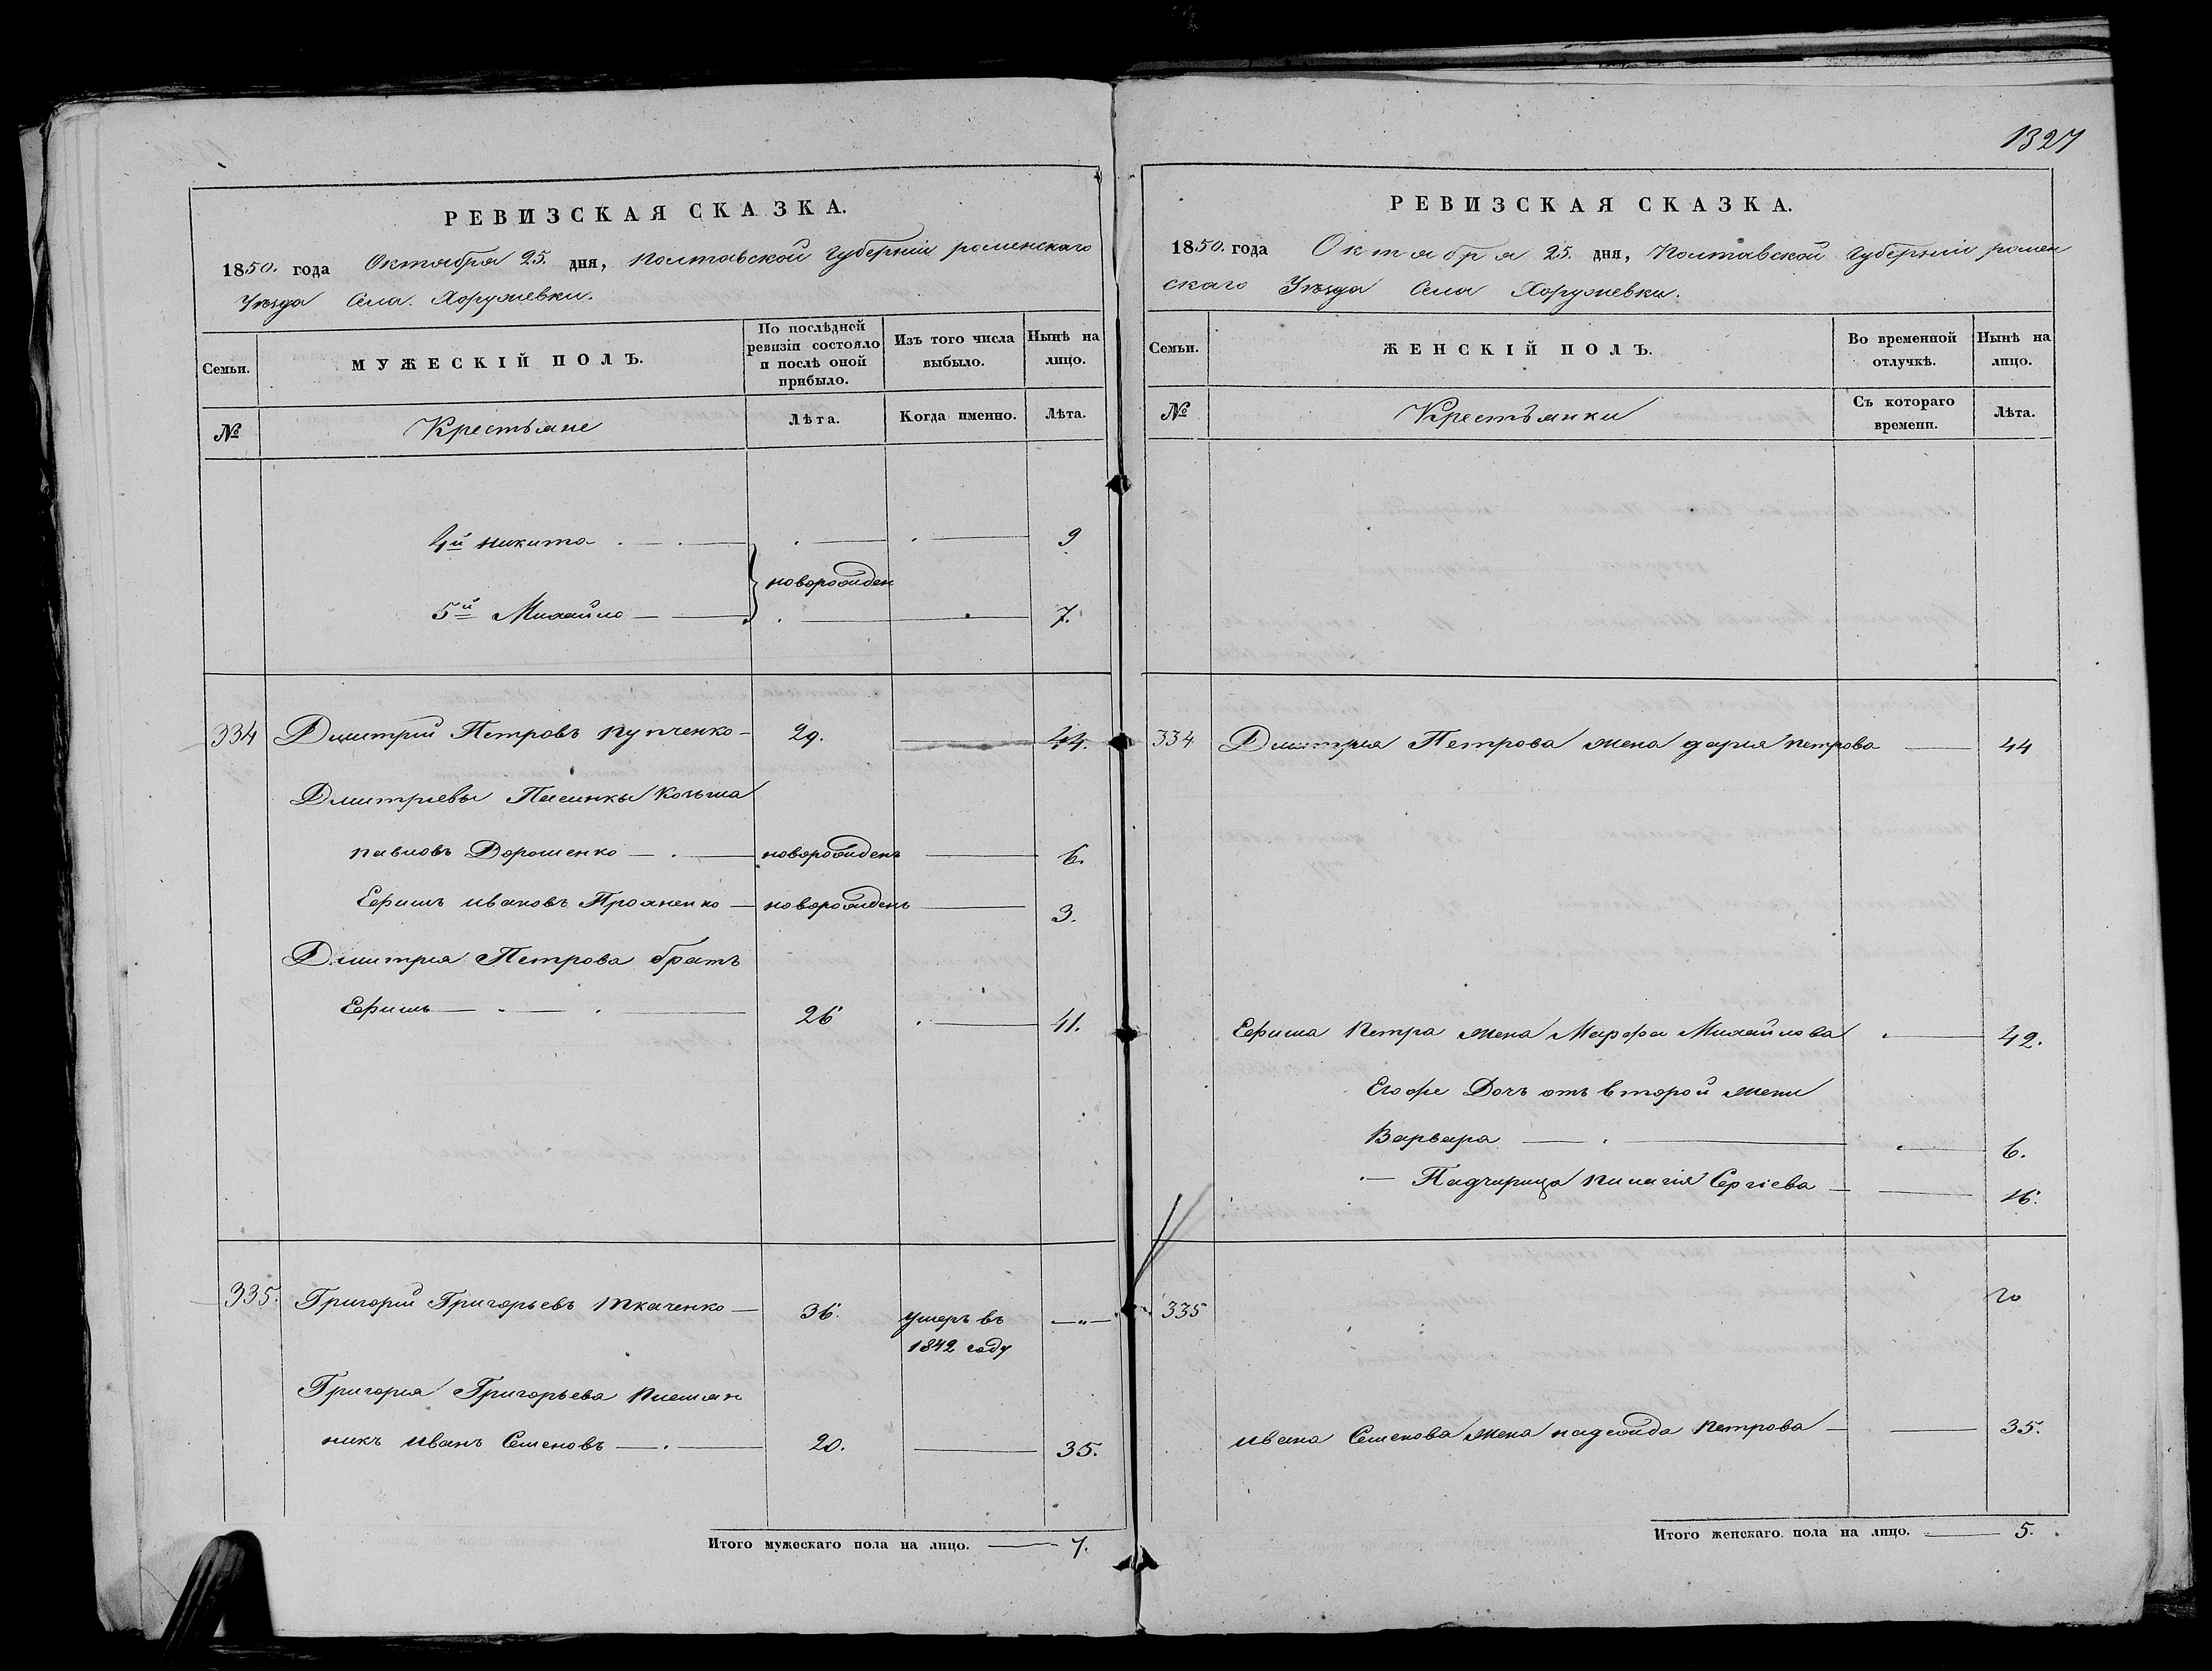 1327
РЕВИЗСКАЯ СКАЗКА.
1850. года Октября 25. дня, Полтавской Губерніи роменскаго
Уѣзда Села Хоружевки.
Семьи.
МУЖЕСКІЙ ПОЛЪ.
По послѣдней
ревизіи состояло
и послѣ оной
прибыло.
Изъ того числа
выбыло.
Нынѣ на
лицо.
№
Крестьяне
Лѣта.
Когда именно.
Лѣта.
4й никита 9
новорожден
5й Михайло 7.
334 Дмитрий Петровъ купченко 29. 44.
Дмитриевы Пасинки Козьма
павловъ Дорошенко новорожденъ 6.
Ефимъ ивановъ новорожденъ 3.
Дмитрия Петрова братъ
Ефимъ 26 41.
335. Григорий Григорьевъ ткаченко 36. умеръ въ —„—
1842 году
Григория Григорьева племян
никъ иванъ Семеновъ 20. 35.
Итого мужескаго пола на лицо. 7.
РЕВИЗСКАЯ СКАЗКА.
1850. года Октября 25. дня, Полтавской Губерніи ромен
скаго Уѣзда Села Хоружевки.
Семьи.
ЖЕНСКІЙ ПОЛЪ.
Во временной
отлучкѣ.
Нынѣ на
лицо.
№
Крестьянки
Съ котораго
времени.
Лѣта.
334 Дмитрия Петрова жена дария петрова 44
Ефима петра жена Марфа Михайлова 42.
Егоже Дочь отъ второй жены
Варвара 6.
— Падчирица пилагія Сергіева 16.
335
ивана Семенова жена надежда петрова 35.
Итого женскаго пола на лицо. 5.